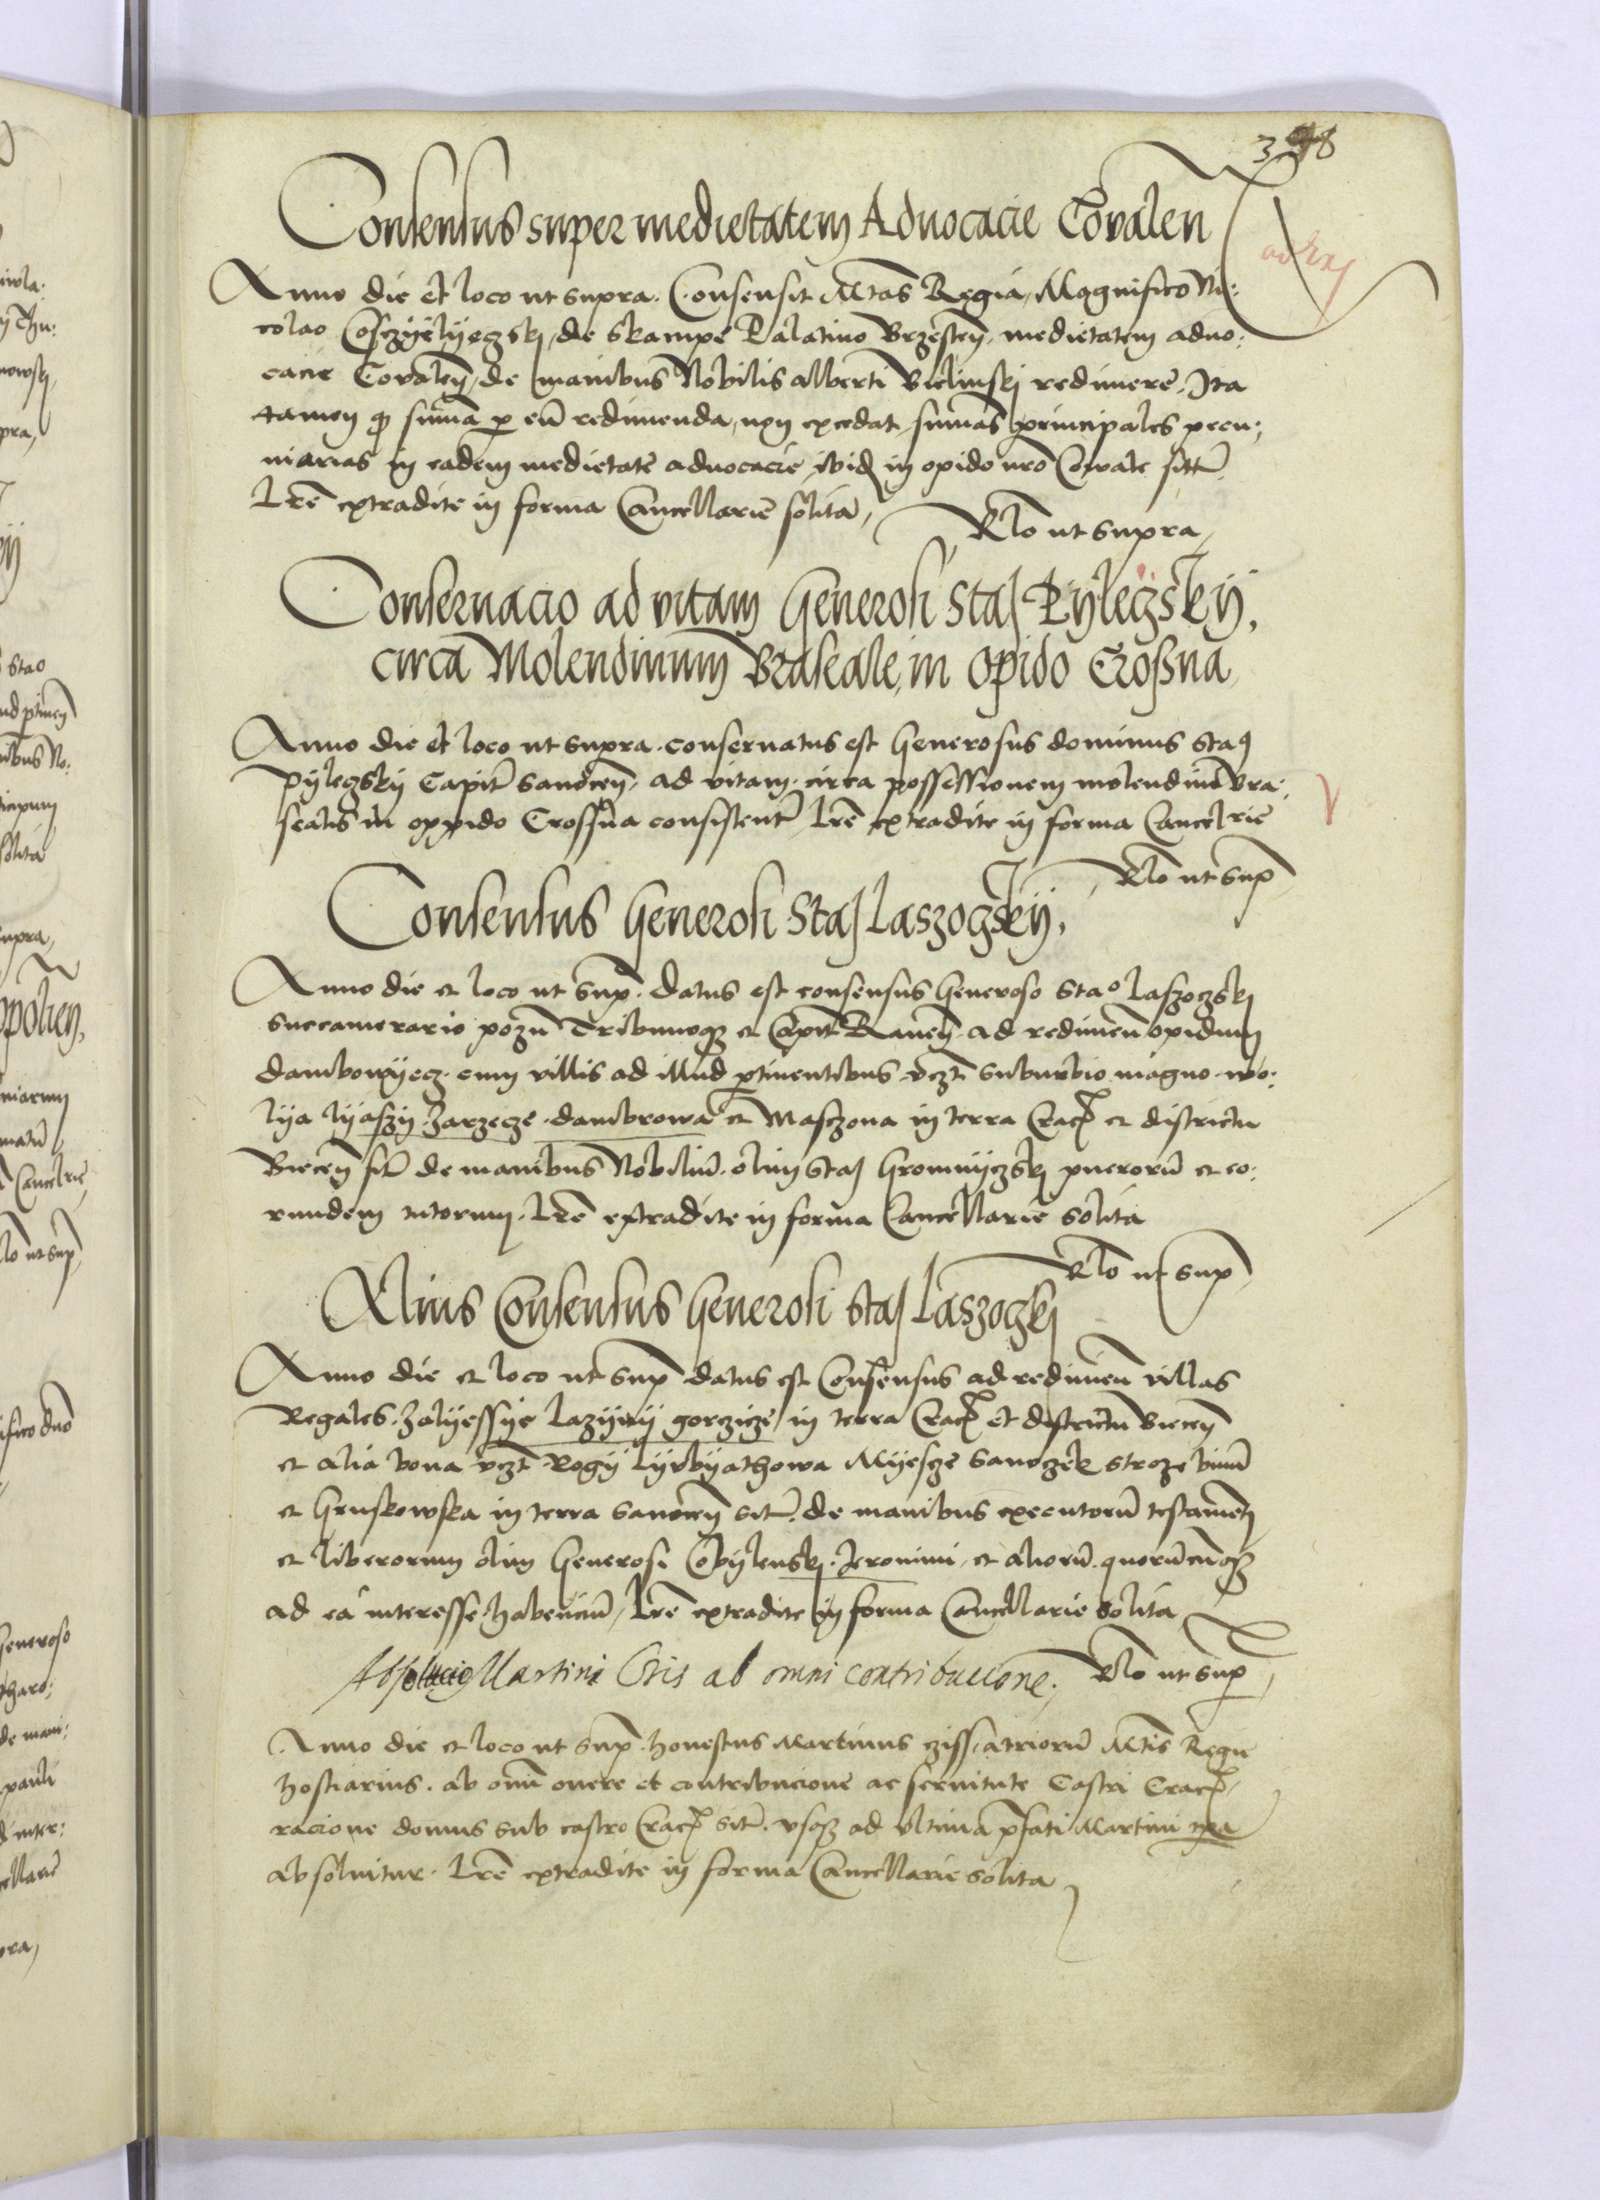 398
Consensus super medietatem Aduocacie Covalen
Anno die et loco ut supra. Consensit Mtas Regia, Magnifico Ni:
colao Cosczyelyeczskj, de Skampe Palatino Brzesten. medietatem aduo:
cacie Covalen, de manibus Nobilis alberti Bielinskj redimere. Ita
tamen q summa p eum redimenda, non excedat summas principales pecu:
niarias in eadem medietate aduocacie, ibid in opido nro Covale sitt
Lre extradite in forma Cancellarie solita,
Rlo ut supra,
Conseruacio ad vitam Generosi Staj Pyleczskÿ,
circa Molendinum Braseale, in Opido Croßna
Anno die et loco ut supra. conseruatus est Generosus dominus Staj
pyleczskij Capit Sanocen, ad vitam. circa possessionem molendini bra:
sealis in oppido Crossna consistent Lre extradite in forma Cancelrie
Rlo ut sup
Consensus Generosi Staj Laszoczskÿ,
Anno die et loco ut sup. Datus est consensus Generoso Stao Laszoczskj
succamerario pozn Tribunoq et Capit Raven. ad redimen opidum
dambowyecz. cum villis ad illud ptinentibus vczt suburbio magno. wo:
lya lyaszy. Zarzecze. dambrowa et Maszona in terra Crac et districtu
Biecen sit de manibus Nobilium. olim Staj Gromnyczskj puerorum et eo:
rundem tutorum. Lre extradite in forma Cancellarie solita
Rlo ut sup
Alius Consensus Generosi Staj Laszoczskj
Anno die et loco ut sup datus est Consensus ad redimen villas
Regales. Zalyessye Lazyny gorczicze, in terra Crac et districtu Biecen
et alia bona vczt Rogy Lyvbyathowa Myescze Sanoczek stroze binum
et Gruskowska in terra Sanocen sit. de manibus executorum testamen
et liberorum olim Generosi Cobylenskj. Jeronimi, et aliorum. quorumcunq
ad ea interesse habencium, Lre extradite in forma Cancellarie solita
Rlo ut sup
Absolucio Martini Cris ab omni contribucione.
Anno die et loco ut sup. honestus Martinus ziss, atriorum Mtis Regie
hostiarius. ab omni onere et contribucione ac seruitute Castri Crac,
racione domus sub castro Crac sit. vsq ad vltima pfati Martini
absoluitur. Lre extradite in forma Cancellarie solita